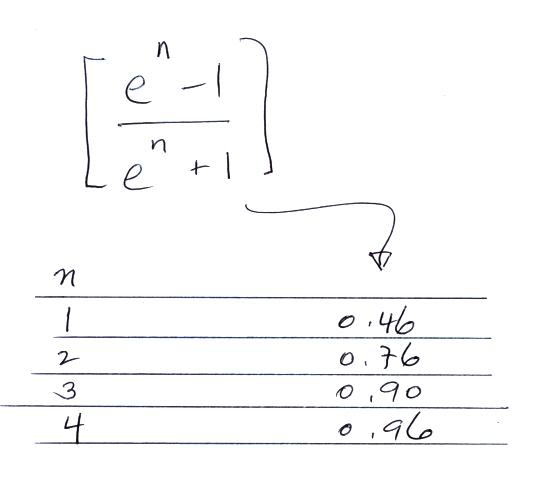 [e^n - 1 / e^n + 1]
n
1 0.46
2 0.76
3 0.90
4 0.96